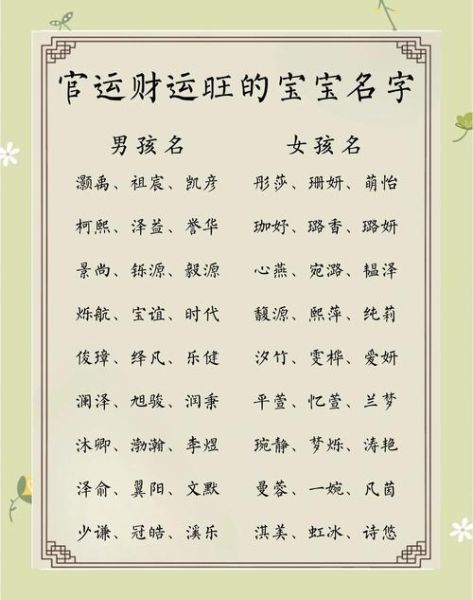 官运财运旺的宝宝名字
男孩名 女孩名
灏禹、祖宸、凯彦 彤莎、珊妍、萌怡
柯熙、泽益、誉华 珈妤、璐香、璐妍
景尚、铄源、毅源 心燕、宛潞、韫泽
烁航、宝谊、时代 馥源、熙萍、纯莉
俊璋、绎凡、乐健 汐竹、雯桦、爱妍
澜泽、旭骏、润秉 平萱、忆萱、兰梦
沐卿、渤瀚、李煜 琬静、梦烁、涛艳
泽俞、翼阳、文默 曼蓉、一婉、凡茵
少谦、冠皓、溪乐 淇美、虹冰、诗悠